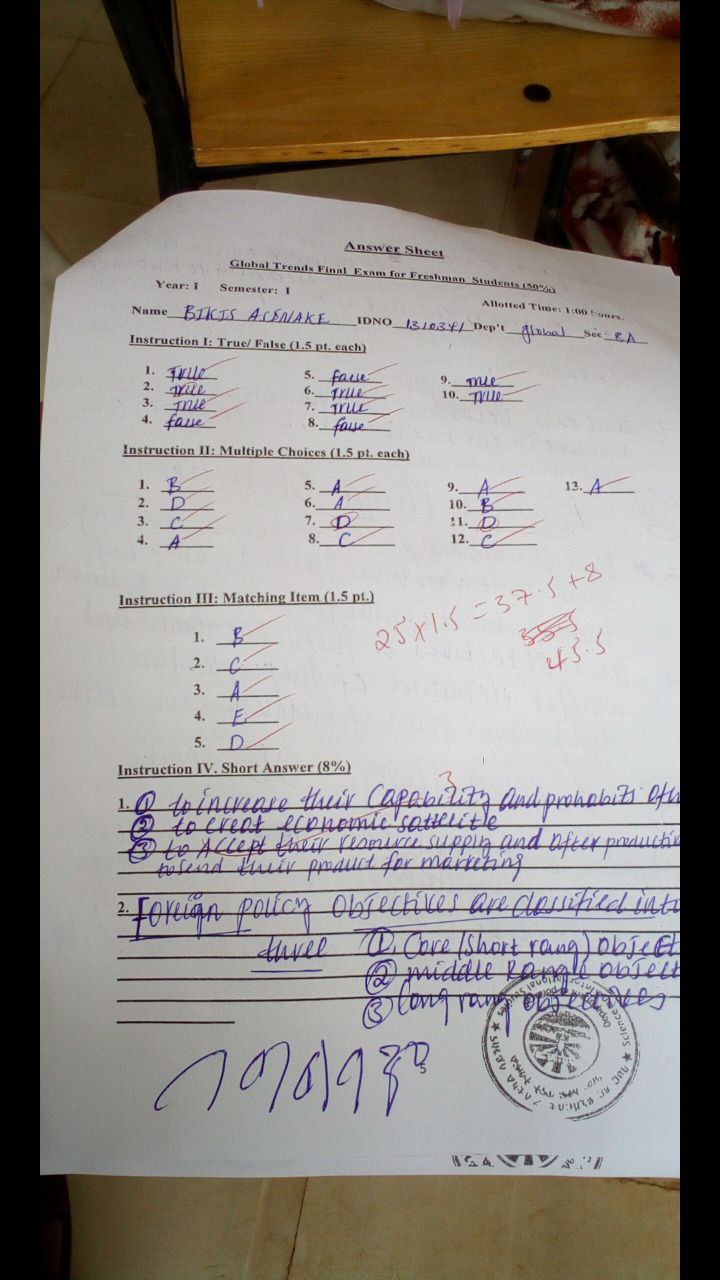 Answer Sheet
Global Trends Final Exam for Freshman Students (50%)
Year: I Semester: I Allotted Time: 1:00 hours.
Name BIKIS ACENAKE IDNO 1310341 Dep't global Sec
Instruction I: True/ False (1.5 pt. each)
1. True 5. false 9. True
2. True 6. True 10. True
3. True 7. True
4. false 8. false
Instruction II: Multiple Choices (1.5 pt. each)
1. B 5. A 9. A 13. A
2. D 6. A 10. B
3. C 7. D 11. D
4. A 8. C 12. C
25 x 1.5 = 37.5 + 8
45.5
Instruction III: Matching Item (1.5 pt.)
1. B
2. C
3. A
4. E
5. D
Instruction IV. Short Answer (8%)
3
1. ① to increase their Capability and prohabits
② to creat economic sattelite
③ to Accept their resource supply and after
to send their product for marketing
2. Foreign policy Objectives are classified into
three ①. Core (short rang) object
② middle Range object
③ long rang objectives